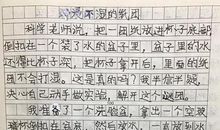 浸不湿的纸团
科学老师说，把一团纸放进杯子底部
倒扣在一个装了水的盆子里，盆子里的水
还得比杯子高，把杯子拿开后，里面的纸
团不会打湿。这是真的吗？我半信半疑，
决心自己动手做实验，解开这个谜团。
我准备了一个洗脸盆，拿出一个空玻
璃杯倒扣在盆底，然后放水，一直放到水